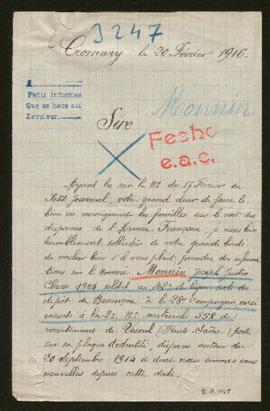 3247
Cromary le 20 Février 1916.
A
Petit informes
Que se hace así
Devolver
Monnin
Sire
Fecho
e.a.c.
Ayant lu sur le No du 17 Février du
Petit Journal, votre grand désir de faire le
bien en renseignant les familles sur le sort des
disparus de l'Armée Française, je viens bien
humblement solliciter de votre grande bonté
de vouloir bien s'il vous plait, prendre des informa-
tions sur le nommé Monnin Joseph Justin
Classe 1904 soldat au 42e de ligne parti du
dépôt de Besançon à la 28e Compagnie versé
ensuite à la 2e No matricule 558 du
recrutement de Vesoul (Haute-Saône) porté
sur sa plaque d'identité, disparu autour du
20 Septembre 1914 et dont nous sommes sans
nouvelles depuis cette date.